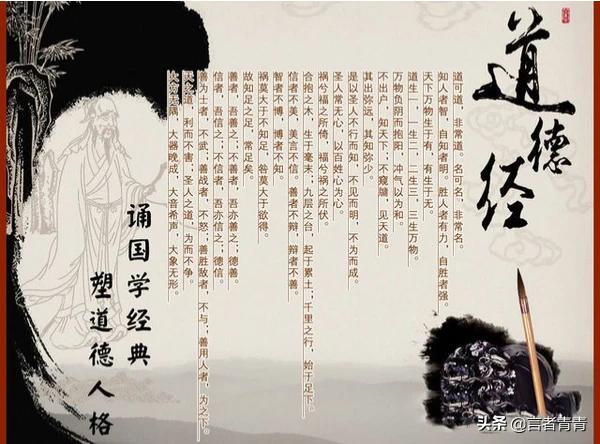 道德经
道可道，非常道。名可名，非常名。
知人者智，自知者明。胜人者有力，自胜者强。
天下万物生于有，有生于无。
道生一，一生二，二生三，三生万物。
万物负阴而抱阳，冲气以为和。
不出户，知天下；不窥牖，见天道。
其出弥远，其知弥少。
是以圣人不行而知，不见而明，不为而成。
圣人常无心，以百姓心为心。
祸兮福之所倚，福兮祸之所伏。
合抱之木，生于毫末；九层之台，起于累土；千里之行，始于足下。
信者不美，美言不信。善者不辩，辩者不善。
智者不博，博者不知。
祸莫大于不知足，咎莫大于欲得。
故知足之足，常足矣。
善者，吾善之；不善者，吾亦善之；德善。
信者，吾信之；不信者，吾亦信之；德信。
善为士者，不武；善战者，不怒；善胜敌者，不与；善用人者，为之下。
天之道，利而不害；圣人之道，为而不争。
大方无隅，大器晚成，大音希声，大象无形。
诵国学经典
塑道德人格
头条 @言者青青